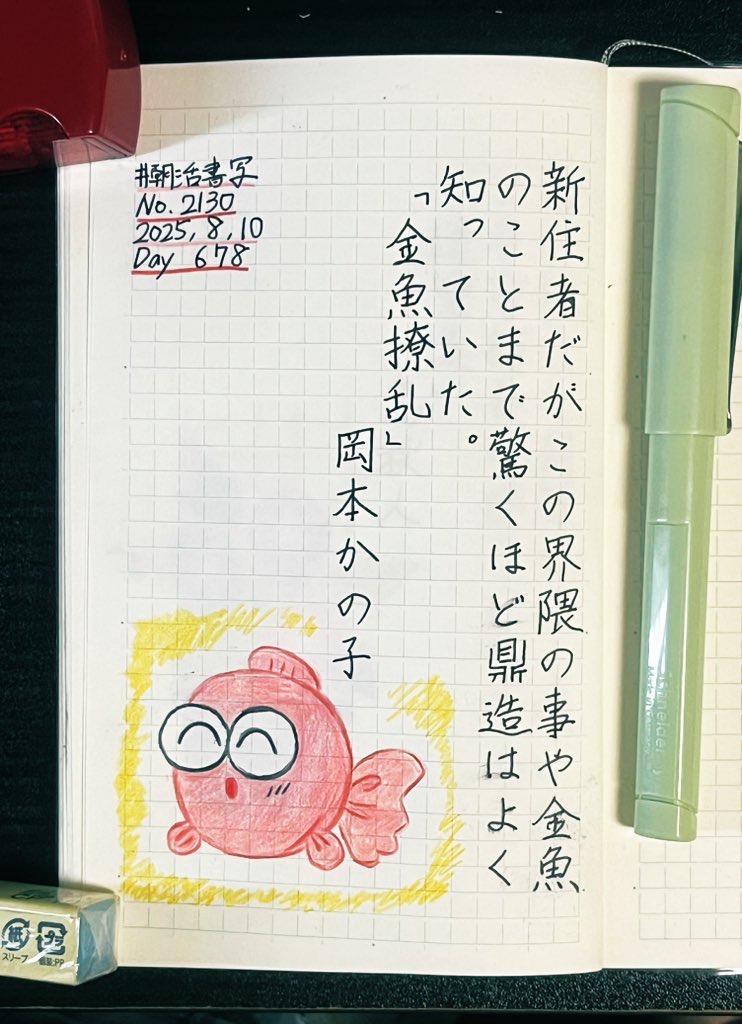 #朝活書写
No. 2130
2025, 8, 10
Day 678
新住者だがこの界隈の事や金魚
のことまで驚くほど鼎造はよく
知っていた。
「金魚撩乱」
岡本かの子
schneider
紙
スリーブ
プラ